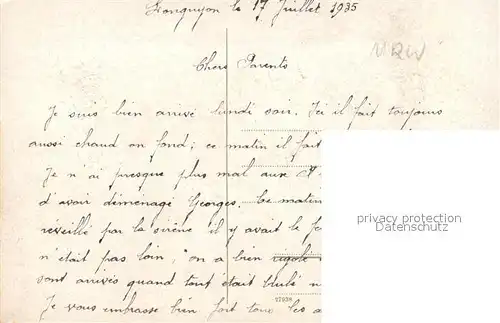 Longuyon le 17 Juillet 1935
MRW
Chers Parents
Je suis bien arrivé lundi soir. Ici il fait toujours
aussi chaud on fond; ce matin il fait
Je n ai presque plus mal aux
d'avoir déménagé Georges. Ce matin
réveillé par la sirène il y avait le
n'était pas loin, "on a bien rigolé
sont arrivés quand tout était brûlé
Je vous embrasse bien fort tous les
privacy protection
Datenschutz